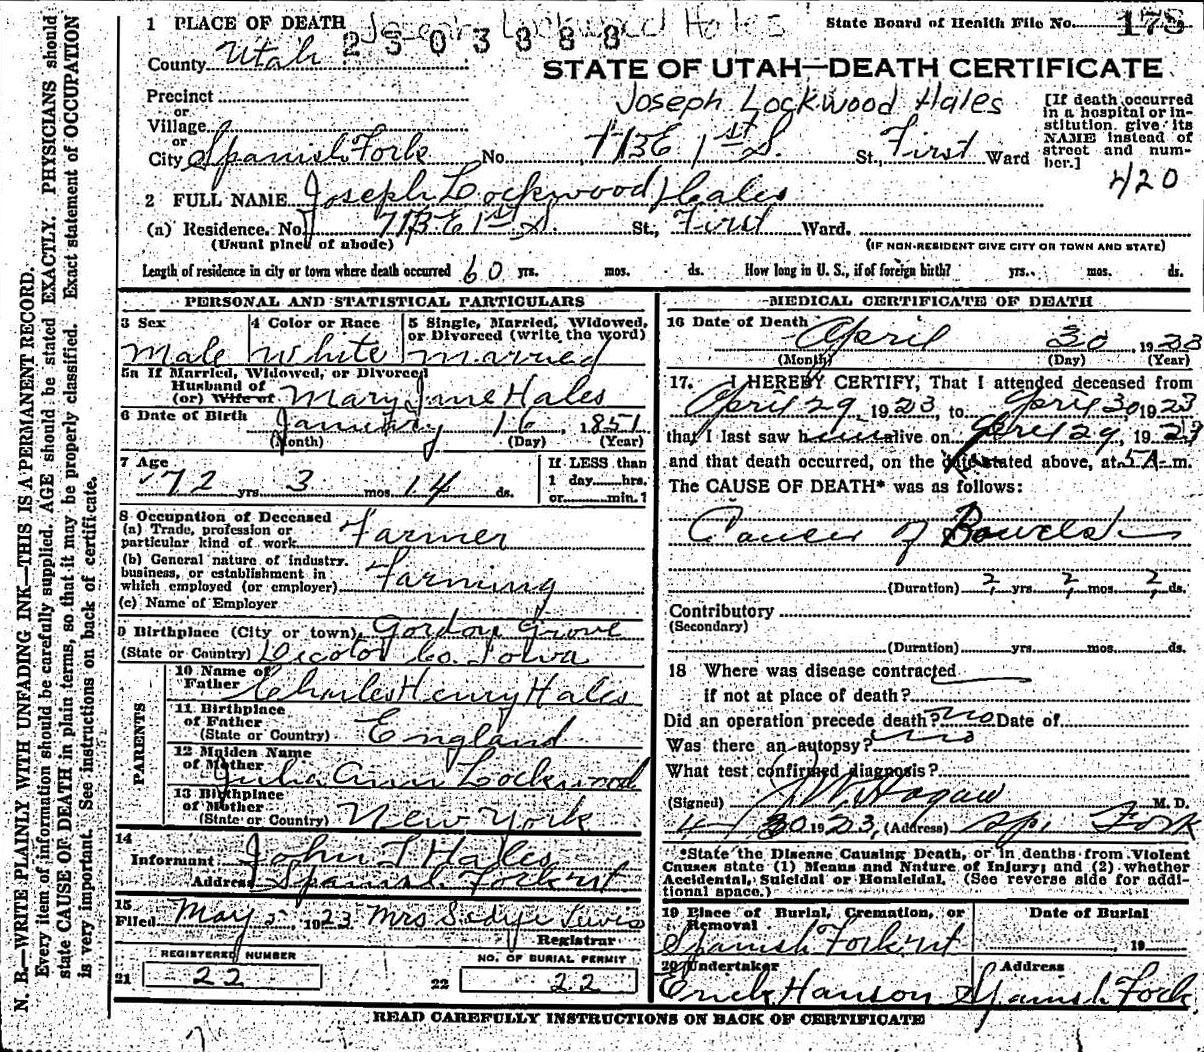 1 PLACE OF DEATH Joseph Lockwood Hales
2303888
State Board of Health File No. 178
County Utah
STATE OF UTAH—DEATH CERTIFICATE
Precinct
or
Village
or
City Spanish Fork No. 713 E 1st S. St., First Ward
Joseph Lockwood Hales
[If death occurred in a hospital or institution, give its NAME instead of street and number.]
420
2 FULL NAME Joseph Lockwood Hales
(a) Residence. No. 713 E 1st S. St., First Ward.
(Usual place of abode)
(IF NON-RESIDENT GIVE CITY OR TOWN AND STATE)
Length of residence in city or town where death occurred 60 yrs. mos. ds. How long in U. S., if of foreign birth? yrs. mos. ds.
PERSONAL AND STATISTICAL PARTICULARS
3 Sex
Male
4 Color or Race
White
5 Single, Married, Widowed, or Divorced (write the word)
Married
5a If Married, Widowed, or Divorced
Husband of
(or) Wife of Mary Jane Hales
6 Date of Birth
January 16, 1851
(Month) (Day) (Year)
7 Age
72 yrs. 3 mos. 14 ds.
If LESS than
1 day hrs.
or min.?
8 Occupation of Deceased
(a) Trade, profession or
particular kind of work Farmer
(b) General nature of industry,
business, or establishment in
which employed (or employer) Farming
(c) Name of Employer
9 Birthplace (City or town) Gordon Grove
(State or Country) Decotor Co. Iowa
PARENTS
10 Name of
Father Charles Henry Hales
11 Birthplace
of Father
(State or Country) England
12 Maiden Name
of Mother Julia Ann Lockwood
13 Birthplace
of Mother
(State or Country) New York
14
Informant John T Hales
Address Spanish Fork ut
15
Filed May 5 1923 Mrs Lewis
Registrar
REGISTERED NUMBER
21 22
NO. OF BURIAL PERMIT
22 22
MEDICAL CERTIFICATE OF DEATH
16 Date of Death
April 30, 1923
(Month) (Day) (Year)
17. I HEREBY CERTIFY, That I attended deceased from
April 29, 1923, to April 30 1923
that I last saw him alive on April 29, 1923
and that death occurred, on the date stated above, at 5 A m.
The CAUSE OF DEATH* was as follows:
Cancer of Bowels
(Duration) 2 yrs. 2 mos. 2 ds.
Contributory
(Secondary)
(Duration) yrs. mos. ds.
18 Where was disease contracted
if not at place of death?
Did an operation precede death? no Date of
Was there an autopsy? no
What test confirmed diagnosis?
(Signed) J W Hagan M. D.
4/30 1923, (Address) Sp. Fork
*State the Disease Causing Death, or in deaths from Violent
Causes state (1) Means and Nature of Injury; and (2) whether
Accidental, Suicidal or Homicidal. (See reverse side for additional space.)
19 Place of Burial, Cremation, or
Removal
Spanish Fork ut
Date of Burial
, 19
20 Undertaker
Erick Hanson
Address
Spanish Fork
READ CAREFULLY INSTRUCTIONS ON BACK OF CERTIFICATE
N. B.—WRITE PLAINLY WITH UNFADING INK—THIS IS A PERMANENT RECORD.
Every item of information should be carefully supplied. AGE should be stated EXACTLY. PHYSICIANS should
state CAUSE OF DEATH in plain terms, so that it may be properly classified. Exact statement of OCCUPATION
is very important. See instructions on back of certificate.